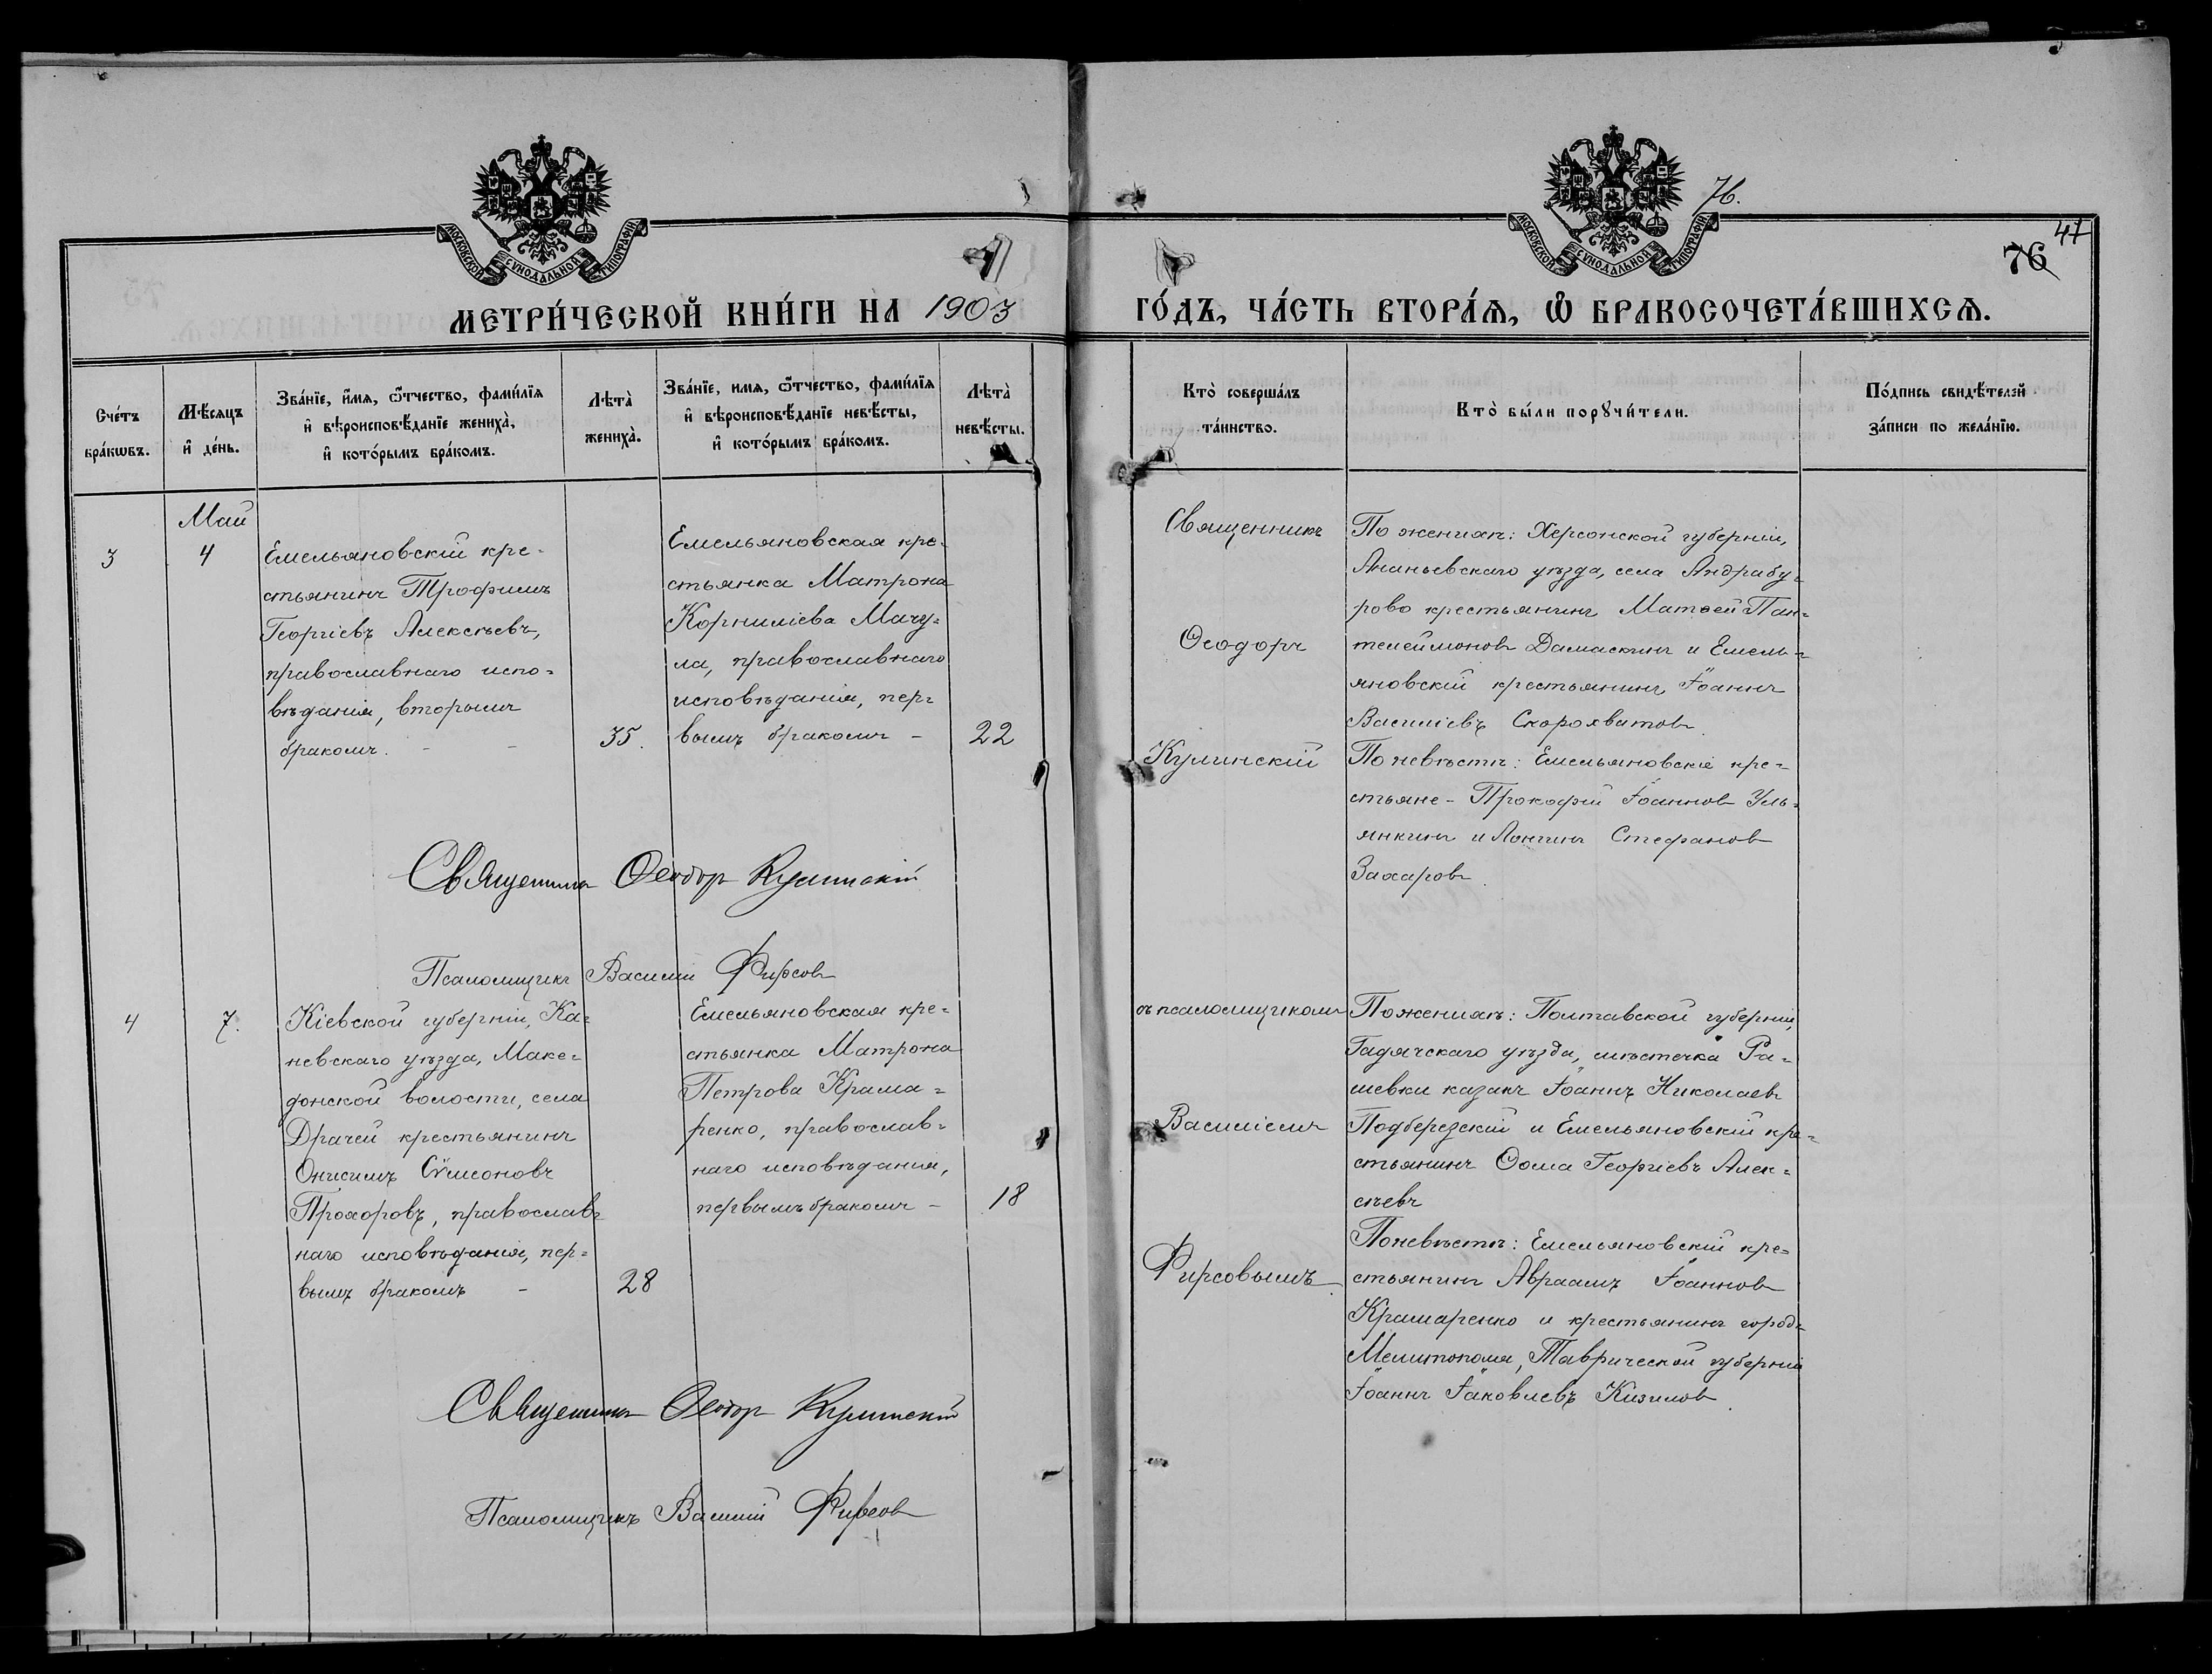 МОСКОВСКОЙ СѴНОДАЛЬНОЙ ТИПОГРАФІИ
МОСКОВСКОЙ СѴНОДАЛЬНОЙ ТИПОГРАФІИ
76.
47
76
МЕТРИ́ЧЕСКОЙ КНИ́ГИ НА 1903
ГО́ДЪ, ЧА́СТЬ ВТОРА́Ѧ, Ѡ҆ БРАКОСОЧЕТА́ВШИХСѦ.
Сче́тъ
бра́кѡвъ.
Мѣ́сяцъ
и҆ де́нь.
Зва́нїе, и҆́мѧ, ѻ҆́тчество, фами́лїѧ
и҆ вѣроисповѣ́данїе жениха̀,
и҆ кото́рымъ бра́комъ.
Лѣта̀
жениха̀.
Зва́нїе, имѧ, ѻ҆́тчество, фами́лїѧ
и҆ вѣроисповѣ́данїе невѣ́сты,
и҆ кото́рымъ бра́комъ.
Лѣта̀
невѣ́сты.
Кто̀ соверша́лъ
та́инство.
Кто̀ бы́ли порꙋчи́тели.
По́дпись свидѣ́телей
за́писи по жела́нїю.
3
Май
4
Емельяновскій кре-
стьянинъ Трофимъ
Георгіевъ Алексѣевъ,
православнаго испо-
вѣданія, вторымъ
бракомъ. - -
35.
Емельяновская кре-
стьянка Матрона
Корниліева Мачу-
ла, православнаго
исповѣданія, пер-
вымъ бракомъ -
22
Священникъ
Ѳеодоръ
Кулинскій
По женихѣ: Херсонской губерніи,
Ананьевскаго уѣзда, села Андрабу-
рово крестьянинъ Матѳей Пан-
телеймоновъ Дамаскинъ и Емель-
яновскій крестьянинъ Іоаннъ
Василіевъ Скорохватовъ.
По невѣстѣ: Емельяновскіе кре-
стьяне - Прокофій Іоанновъ Уль-
янкинъ и Лонгинъ Стефановъ
Захаровъ.
Священникъ Ѳеодоръ Кулинскій
Псаломщикъ Василій Фирсовъ
4
7.
Кіевской губерніи, Ка-
невскаго уѣзда, Маке-
донской волости, села
Драчей крестьянинъ
Онисимъ Сѵмеоновъ
Прохоровъ, православ-
наго исповѣданія, пер-
вымъ бракомъ -
28
Емельяновская кре-
стьянка Матрона
Петрова Крама-
ренко, православ-
наго исповѣданія,
первымъ бракомъ -
18
съ псаломщикомъ
Василіемъ
Фирсовымъ.
По женихѣ: Полтавской губерніи,
Гадячскаго уѣзда, мѣстечка Ра-
шевки казакъ Іоаннъ Николаевъ
Подберезскій и Емельяновскій кре-
стьянинъ Ѳома Георгіевъ Алек-
сѣевъ
По невѣстѣ: Емельяновскій кре-
стьянинъ Авраамъ Іоанновъ
Крамаренко и крестьянинъ город-
Мелитополя, Таврической губерніи
Іоаннъ Іаковлевъ Кизиловъ.
Священникъ Ѳеодоръ Кулинскій
Псаломщикъ Василій Фирсовъ